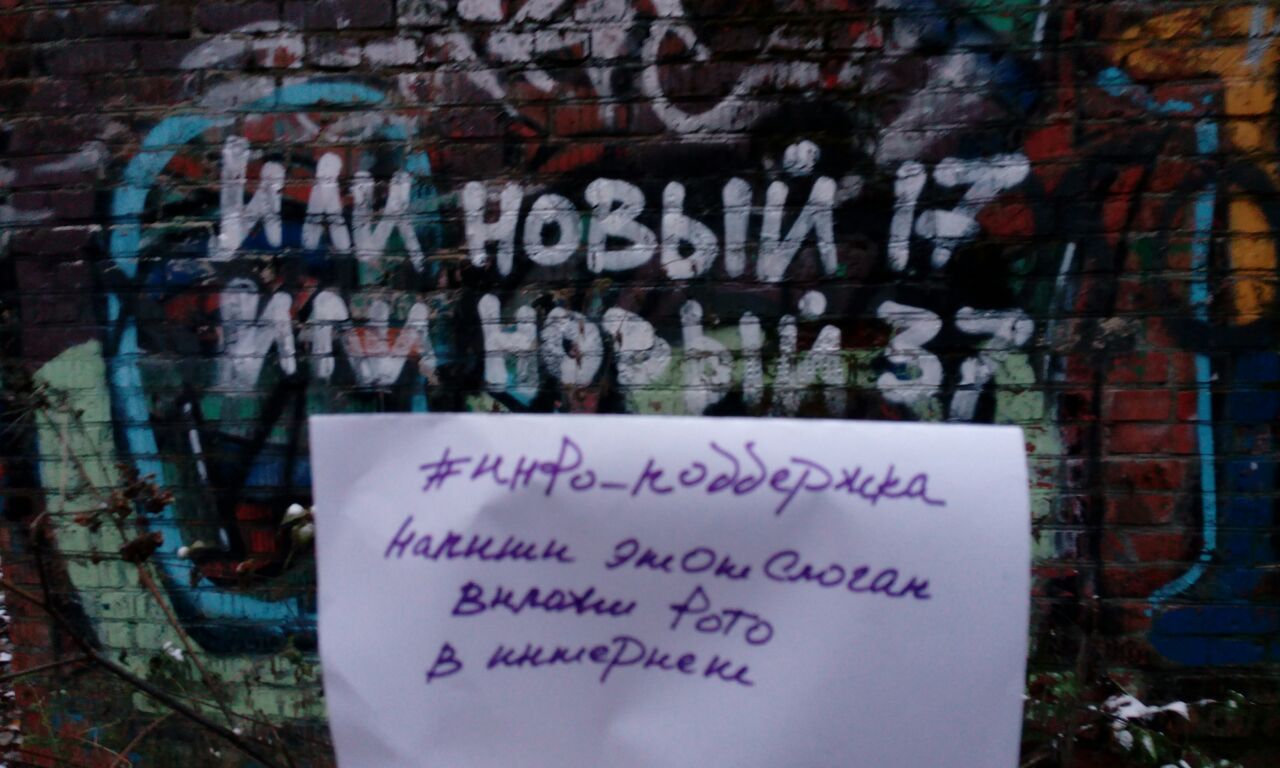 ИЛИ НОВЫЙ 17
ИЛИ НОВЫЙ 37
#инфо_поддержка
напиши этот слоган
вложи фото
в интернет